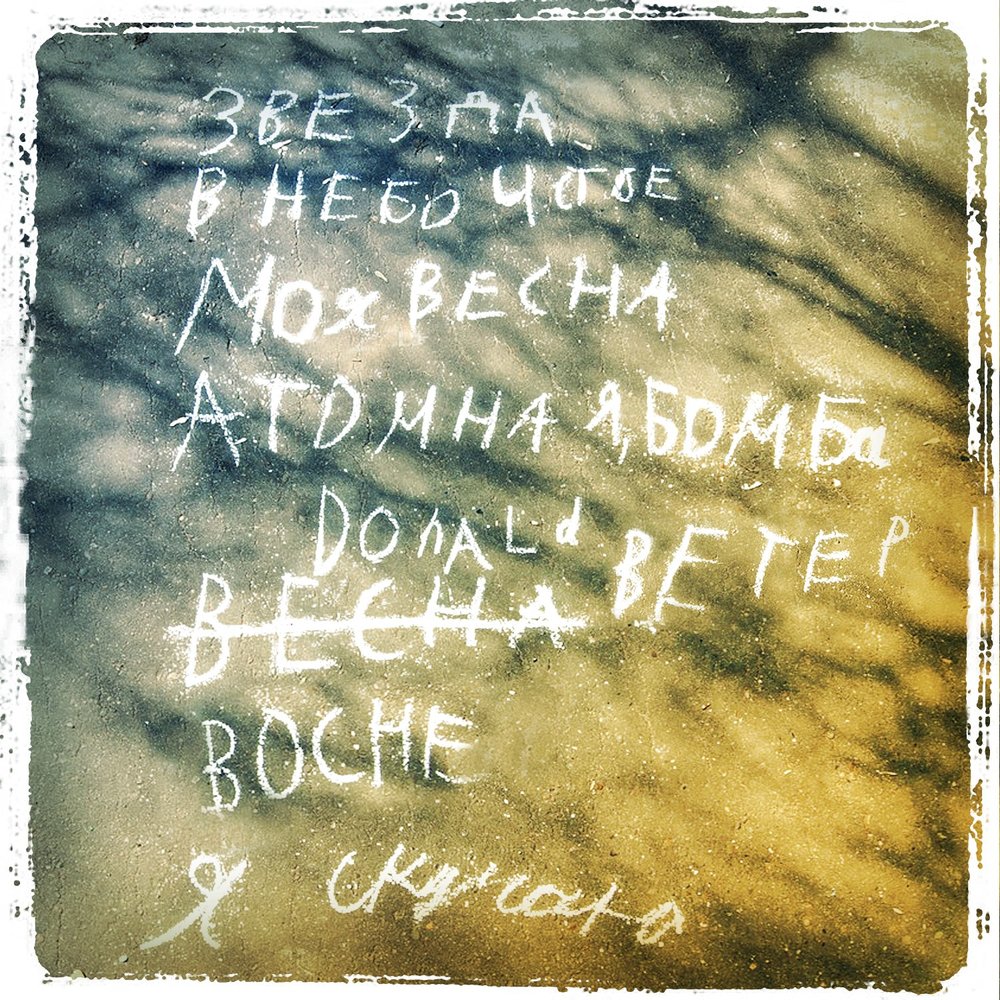 ЗВЕЗДА
В НЕБО ЧСТОЕ
МОЯ ВЕСНА
АТОМНАЯ, БОМБа
DOnALd ВЕТЕР
ВЕСНА
ВОСНЕ
Я